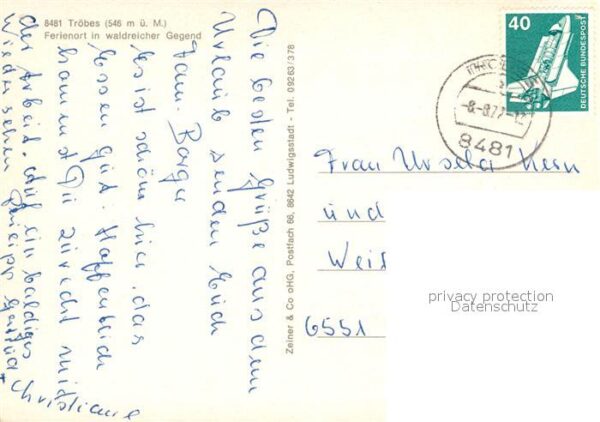 8481 Tröbes (546 m ü. M.)
Ferienort in waldreicher Gegend
Die besten Grüße aus dem
Urlaub senden Euch
Fam. Berger
Es ist schön hier, das
Essen gut. Hoffentlich
kommst Du zurecht mit
der Arbeit. Auf ein baldiges
Wiedersehen
Christiane
Zeiner & Co oHG, Postfach 66, 8642 Ludwigsstadt - Tel. 09263/378
40
DEUTSCHE BUNDESPOST
8481
Frau Ursula Kern
und
Weis
6551
privacy protection
Datenschutz